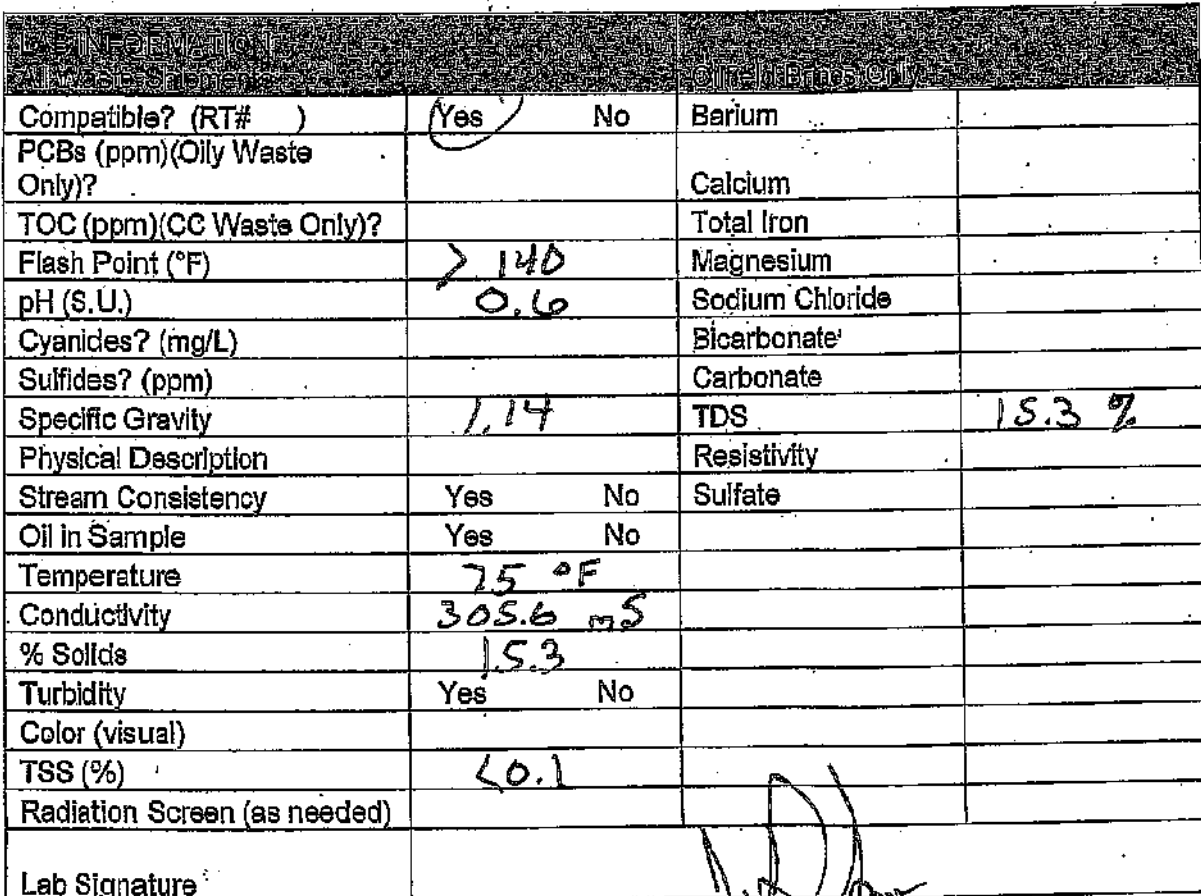 LAB INFORMATION
All Waste Shipments Oilfield Brines Only
Compatible? (RT# ) Yes No Barium
PCBs (ppm)(Oily Waste
Only)? Calcium
TOC (ppm)(CC Waste Only)? Total Iron
Flash Point (°F) > 140 Magnesium
pH (S.U.) 0.6 Sodium Chloride
Cyanides? (mg/L) Bicarbonate
Sulfides? (ppm) Carbonate
Specific Gravity 1.14 TDS 15.3 %
Physical Description Resistivity
Stream Consistency Yes No Sulfate
Oil in Sample Yes No
Temperature 75 °F
Conductivity 305.6 mS
% Solids 15.3
Turbidity Yes No
Color (visual)
TSS (%) <0.1
Radiation Screen (as needed)
Lab Signature